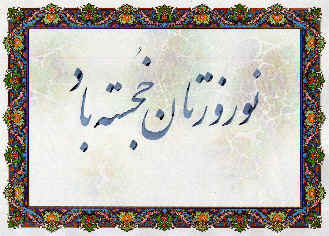 نوروزتان خجسته باد